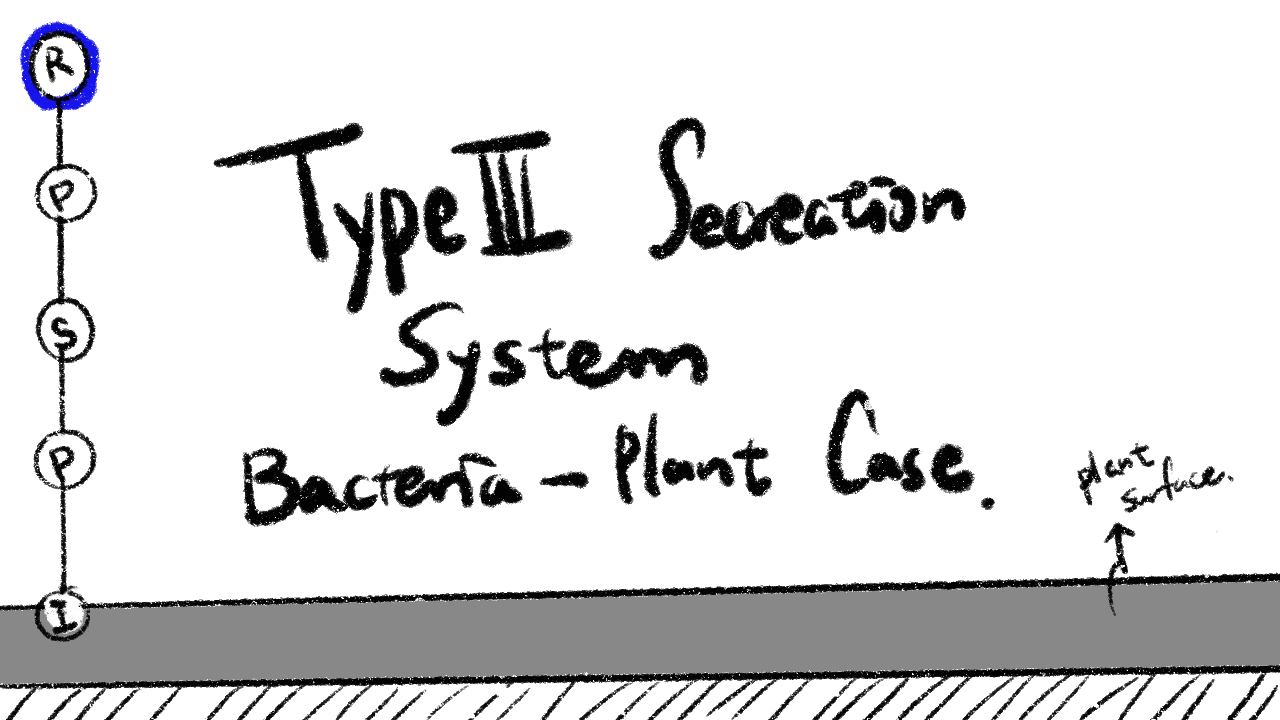 R
P
S
P
I
Type III Secreation
System
Bacteria - Plant Case.
plant
surface.